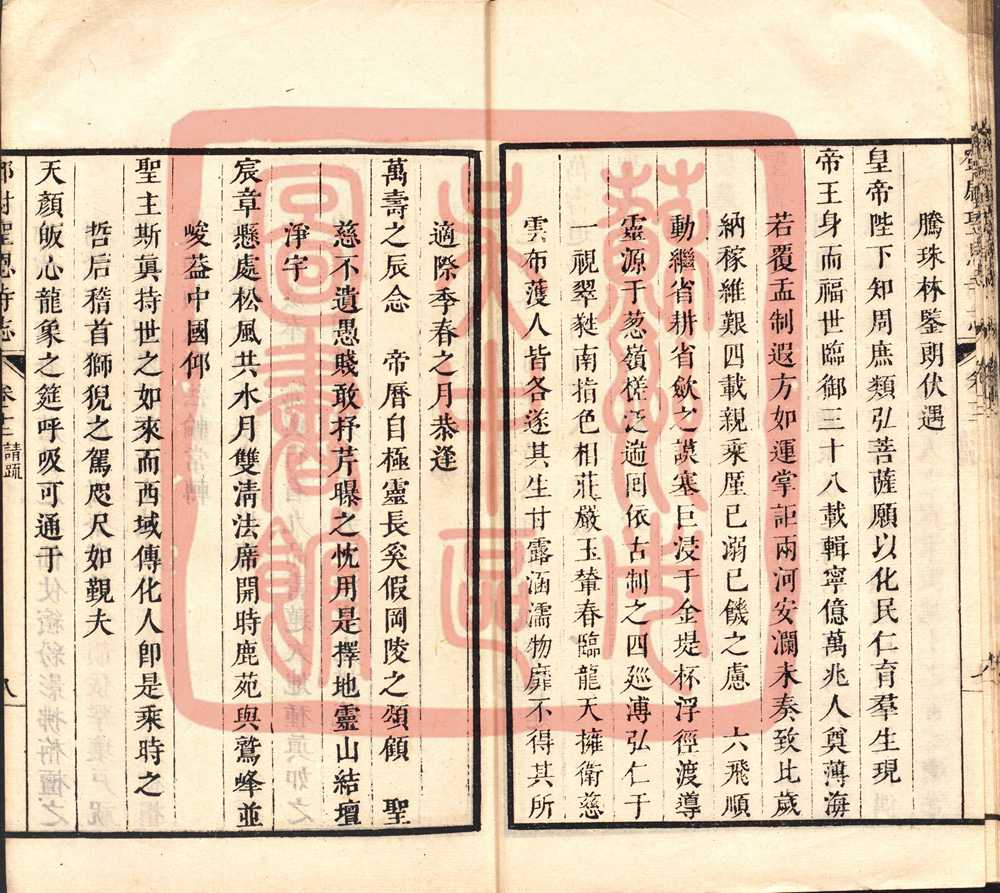 騰珠林鑒朗伏遇
皇帝陛下知周庶類弘菩薩願以化民仁育羣生現
帝王身而福世臨御三十八載輯寧億萬兆人奠薄海
若覆盂制遐方如運掌詎兩河安瀾未奏致比歲
納稼維艱四載親乘厪已溺已饑之慮 六飛順
動繼省耕省歛之謨塞巨浸于金堤杯浮徑渡導
靈源于葱嶺槎泛遄囘依古制之四廵溥弘仁于
一視翠㲝南指色相莊嚴玉輦春臨龍天擁衛慈
雲布蔭人皆各遂其生甘露涵濡物靡不得其所
適際季春之月恭逢
萬壽之辰念 帝曆自極靈長奚假岡陵之頌顧 聖
慈不遺愚賤敢抒芹曝之忱用是擇地靈山結壇
淨宇
宸章懸處松風共水月雙淸法席開時鹿苑與鷲峰並
峻益中國仰
聖主斯眞持世之如來而西域傳化人卽是乘時之
哲后稽首獅猊之駕咫尺如覲夫
天顏皈心龍象之筵呼吸可通于
聖恩寺志
卷十二
請疏
八